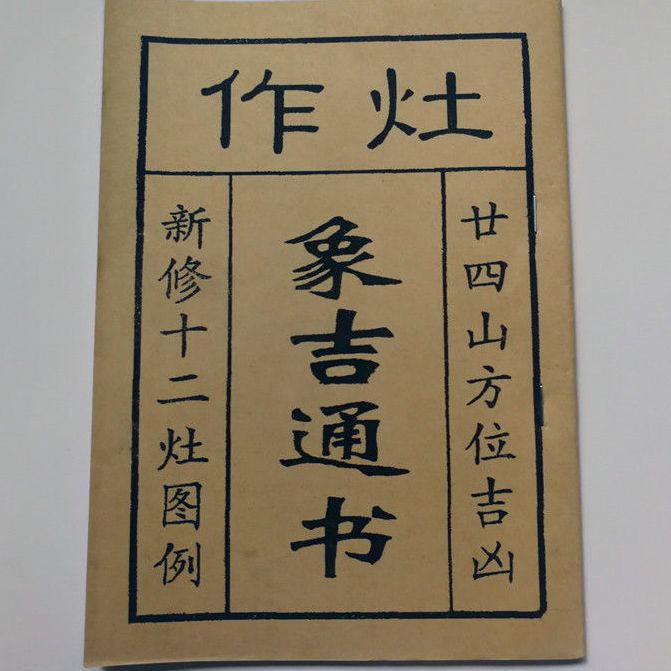 作灶
廿四山方位吉凶
象吉通书
新修十二灶图例